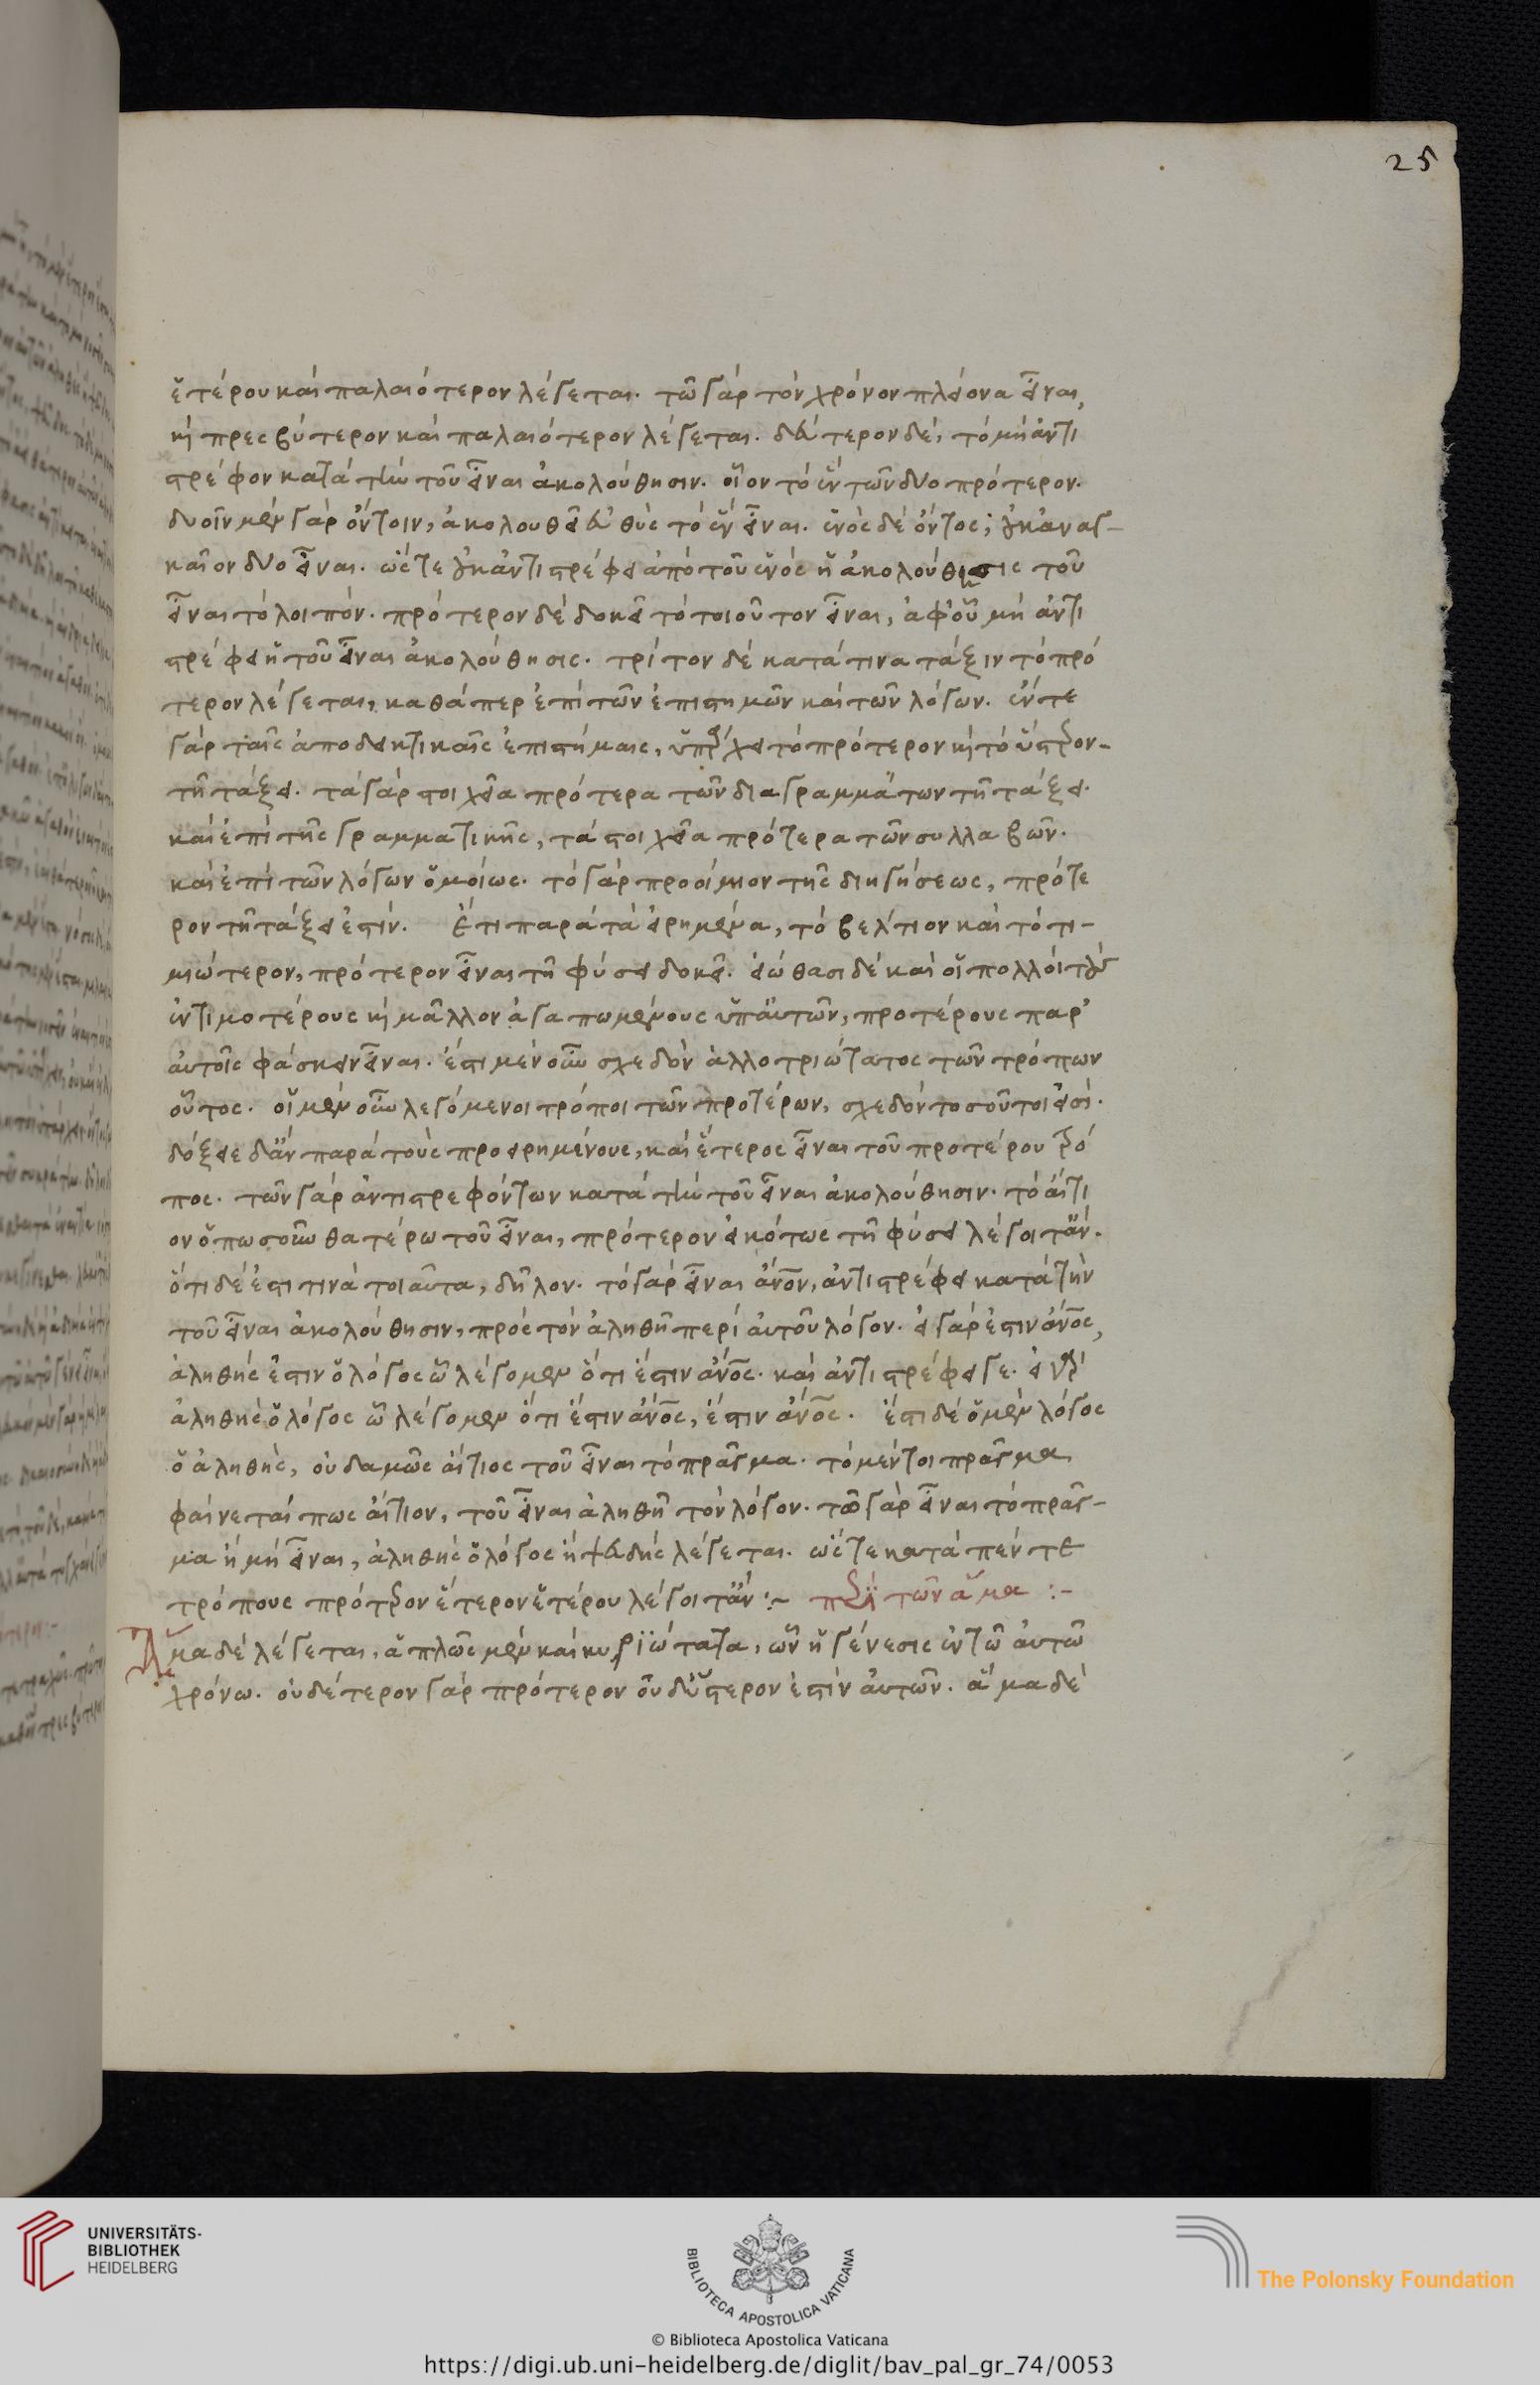 25
ἑτέρου καὶ παλαιότερον λέγεται. τῶ γὰρ τὸν χρόνον πλείονα εἶναι,
καὶ πρεσβύτερον καὶ παλαιότερον λέγεται. δεύτερον δὲ, τὸ μὴ ἀντι
στρέφον κατὰ τὴν τοῦ εἶναι ἀκολούθησιν. οἷον τὸ ἓν τῶν δύο πρότερον.
δυοῖν μὲν γὰρ ὄντοιν, ἀκολουθεῖ εὐθὺς τὸ ἓν εἶναι. ἑνὸς δὲ ὄντος, οὐκ ἀναγ-
καῖον δύο εἶναι. ὥστε οὐκ ἀντιστρέφει ἀπὸ τοῦ ἑνὸς ἡ ἀκολούθησις τοῦ
εἶναι τὸ λοιπόν. πρότερον δὲ δοκεῖ τὸ τοιοῦτον εἶναι, ἀφ' οὗ μὴ ἀντι
στρέφει ἡ τοῦ εἶναι ἀκολούθησις. τρίτον δὲ κατά τινα τάξιν τὸ πρό
τερον λέγεται, καθάπερ ἐπὶ τῶν ἐπιστημῶν καὶ τῶν λόγων. ἔν τε
γὰρ ταῖς ἀποδεικτικαῖς ἐπιστήμαις, ὑπάρχει τὸ πρότερον καὶ τὸ ὕστερον-
τῆ τάξει. τὰ γὰρ στοιχεῖα πρότερα τῶν διαγραμμάτων τῆ τάξει.
καὶ ἐπὶ τῆς γραμματικῆς, τὰ στοιχεῖα πρότερα τῶν συλλαβῶν.
καὶ ἐπὶ τῶν λόγων ὁμοίως. τὸ γὰρ προοίμιον τῆς διηγήσεως, πρότε
ρον τῆ τάξει ἐστίν. Ἔτι παρὰ τὰ εἰρημένα, τὸ βέλτιον καὶ τὸ τι-
μιώτερον, πρότερον εἶναι τῆ φύσει δοκεῖ. εἰώθασι δὲ καὶ οἱ πολλοὶ τοὺς
ἐντιμοτέρους καὶ μᾶλλον ἀγαπωμένους ὑπ' αὐτῶν, προτέρους παρ'
αὐτοῖς φάσκειν εἶναι. ἔστι μὲν οὖν σχεδὸν ἀλλοτριώτατος τῶν τρόπων
οὗτος. οἱ μὲν οὖν λεγόμενοι τρόποι τῶν προτέρων, σχεδὸν τοσοῦτοι εἰσί.
δόξειε δ' ἂν παρὰ τοὺς προειρημένους, καὶ ἕτερος εἶναι τοῦ προτέρου τρό
πος. τῶν γὰρ ἀντιστρεφόντων κατὰ τὴν τοῦ εἶναι ἀκολούθησιν. τὸ αἴτι
ον ὁπωσοῦν θατέρω τοῦ εἶναι, πρότερον εἰκότως τῆ φύσει λέγοιτ' ἄν.
ὅτι δὲ ἔστι τινὰ τοιαῦτα, δῆλον. τὸ γὰρ εἶναι ἄνον, ἀντιστρέφει κατὰ τὴν
τοῦ εἶναι ἀκολούθησιν, πρὸς τὸν ἀληθῆ περὶ αὐτοῦ λόγον. εἰ γὰρ ἔστιν ἄνος,
ἀληθής ἐστιν ὁ λόγος ὧ λέγομεν ὅτι ἔστιν ἄνος. καὶ ἀντιστρέφει γε. εἰ γὰρ
ἀληθὴς ὁ λόγος ὧ λέγομεν ὅτι ἔστιν ἄνος, ἔστιν ἄνος. ἔστι δὲ ὁ μὲν λόγος
ὁ ἀληθὴς, οὐδαμῶς αἴτιος τοῦ εἶναι τὸ πρᾶγμα. τὸ μέντοι πρᾶγμα
φαίνεταί πως αἴτιον, τοῦ εἶναι ἀληθῆ τὸν λόγον. τῶ γὰρ εἶναι τὸ πρᾶγ-
μα ἢ μὴ εἶναι, ἀληθὴς ὁ λόγος ἢ ψευδὴς λέγεται. ὥστε κατὰ πέντε
τρόπους πρότερον ἕτερον ἑτέρου λέγοιτ' ἄν :~ περὶ τῶν ἅμα :-
Ἅμα δὲ λέγεται, ἁπλῶς μὲν καὶ κυριώτατα, ὧν ἡ γένεσις ἐν τῶ αὐτῶ
χρόνω. οὐδέτερον γὰρ πρότερον οὐδ' ὕστερον ἐστὶν αὐτῶν. ἅμα δὲ
UNIVERSITÄTS-
BIBLIOTHEK
HEIDELBERG
BIBLIOTECA APOSTOLICA VATICANA
The Polonsky Foundation
© Biblioteca Apostolica Vaticana
https://digi.ub.uni-heidelberg.de/diglit/bav_pal_gr_74/0053